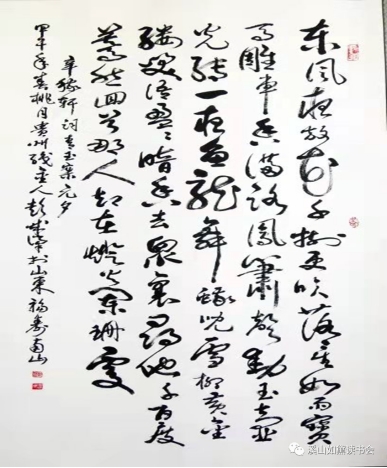 东风夜放花千树更吹落星如雨宝
马雕车香满路凤箫声动玉壶
光转一夜鱼龙舞蛾儿雪柳黄金
缕笑语盈盈暗香去众里寻他千百度
蓦然回首那人却在燈火阑珊处
辛稼轩词青玉案元夕
甲午年春桃月贵州人彭于山东福寿南山
溪山如黛读书会